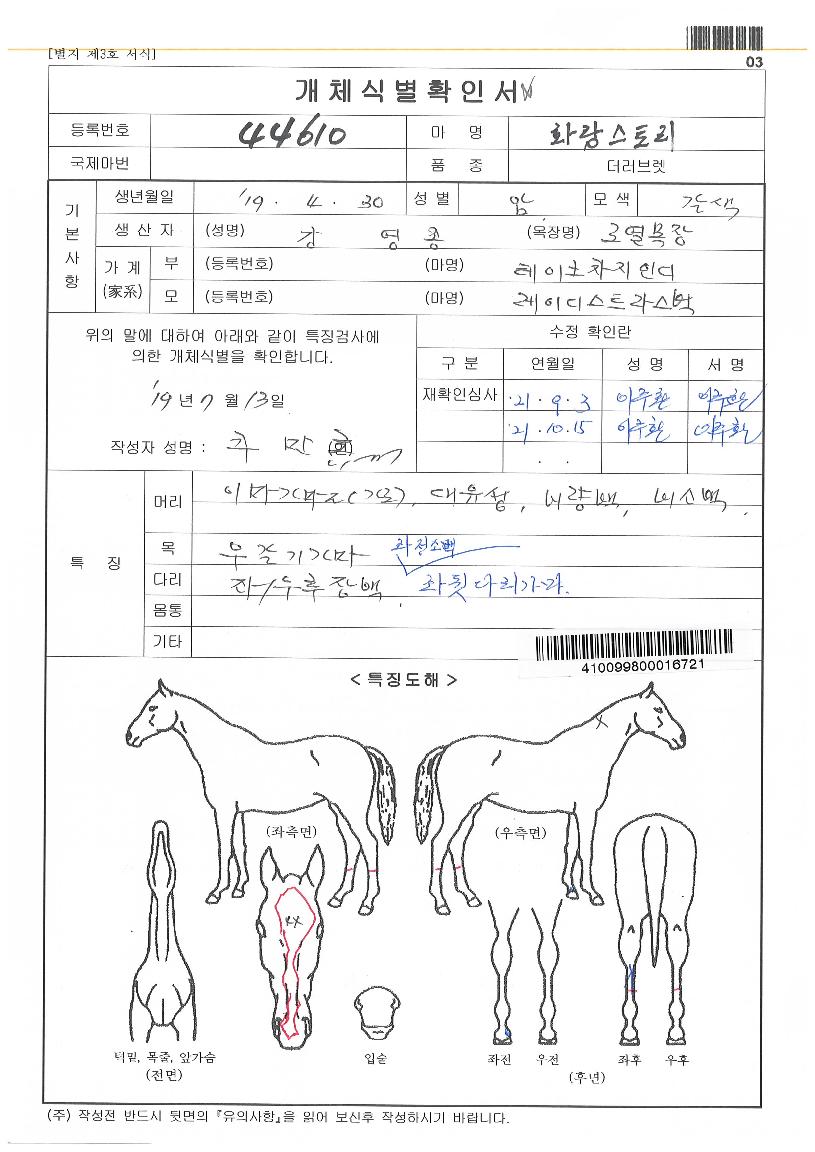 [별지 제3호 서식]
03
개체식별확인서
등록번호 44610 마 명 화랑스토리
국제마번 품 종 더러브렛
기본사항
생년월일 '19 . 4 . 30 성 별 암 모 색 갈색
생 산 자 (성명) 강 영 종 (목장명) 로열목장
가 계 (家系)
부 (등록번호) (마명) 테이크차지인디
모 (등록번호) (마명) 레이디스트라스
위의 말에 대하여 아래와 같이 특징검사에
의한 개체식별을 확인합니다.
'19 년 7 월 13 일
작성자 성명 :
수정 확인란
구 분 연월일 성 명 서 명
재확인심사 '21 . 9 . 3 이주환 이주환
'21 . 10 . 15 이주환 이주환
. .
특 징
머리 대유성, 비량백, 비소백.
목
좌전소백
다리 좌뒷다리가마.
몸통
기타
410099800016721
< 특징도해 >
(좌측면) (우측면)
턱밑, 목줄, 앞가슴
(전면)
입술
좌전 우전 좌후 우후
(후년)
(주) 작성전 반드시 뒷면의 『유의사항』을 읽어 보신후 작성하시기 바랍니다.